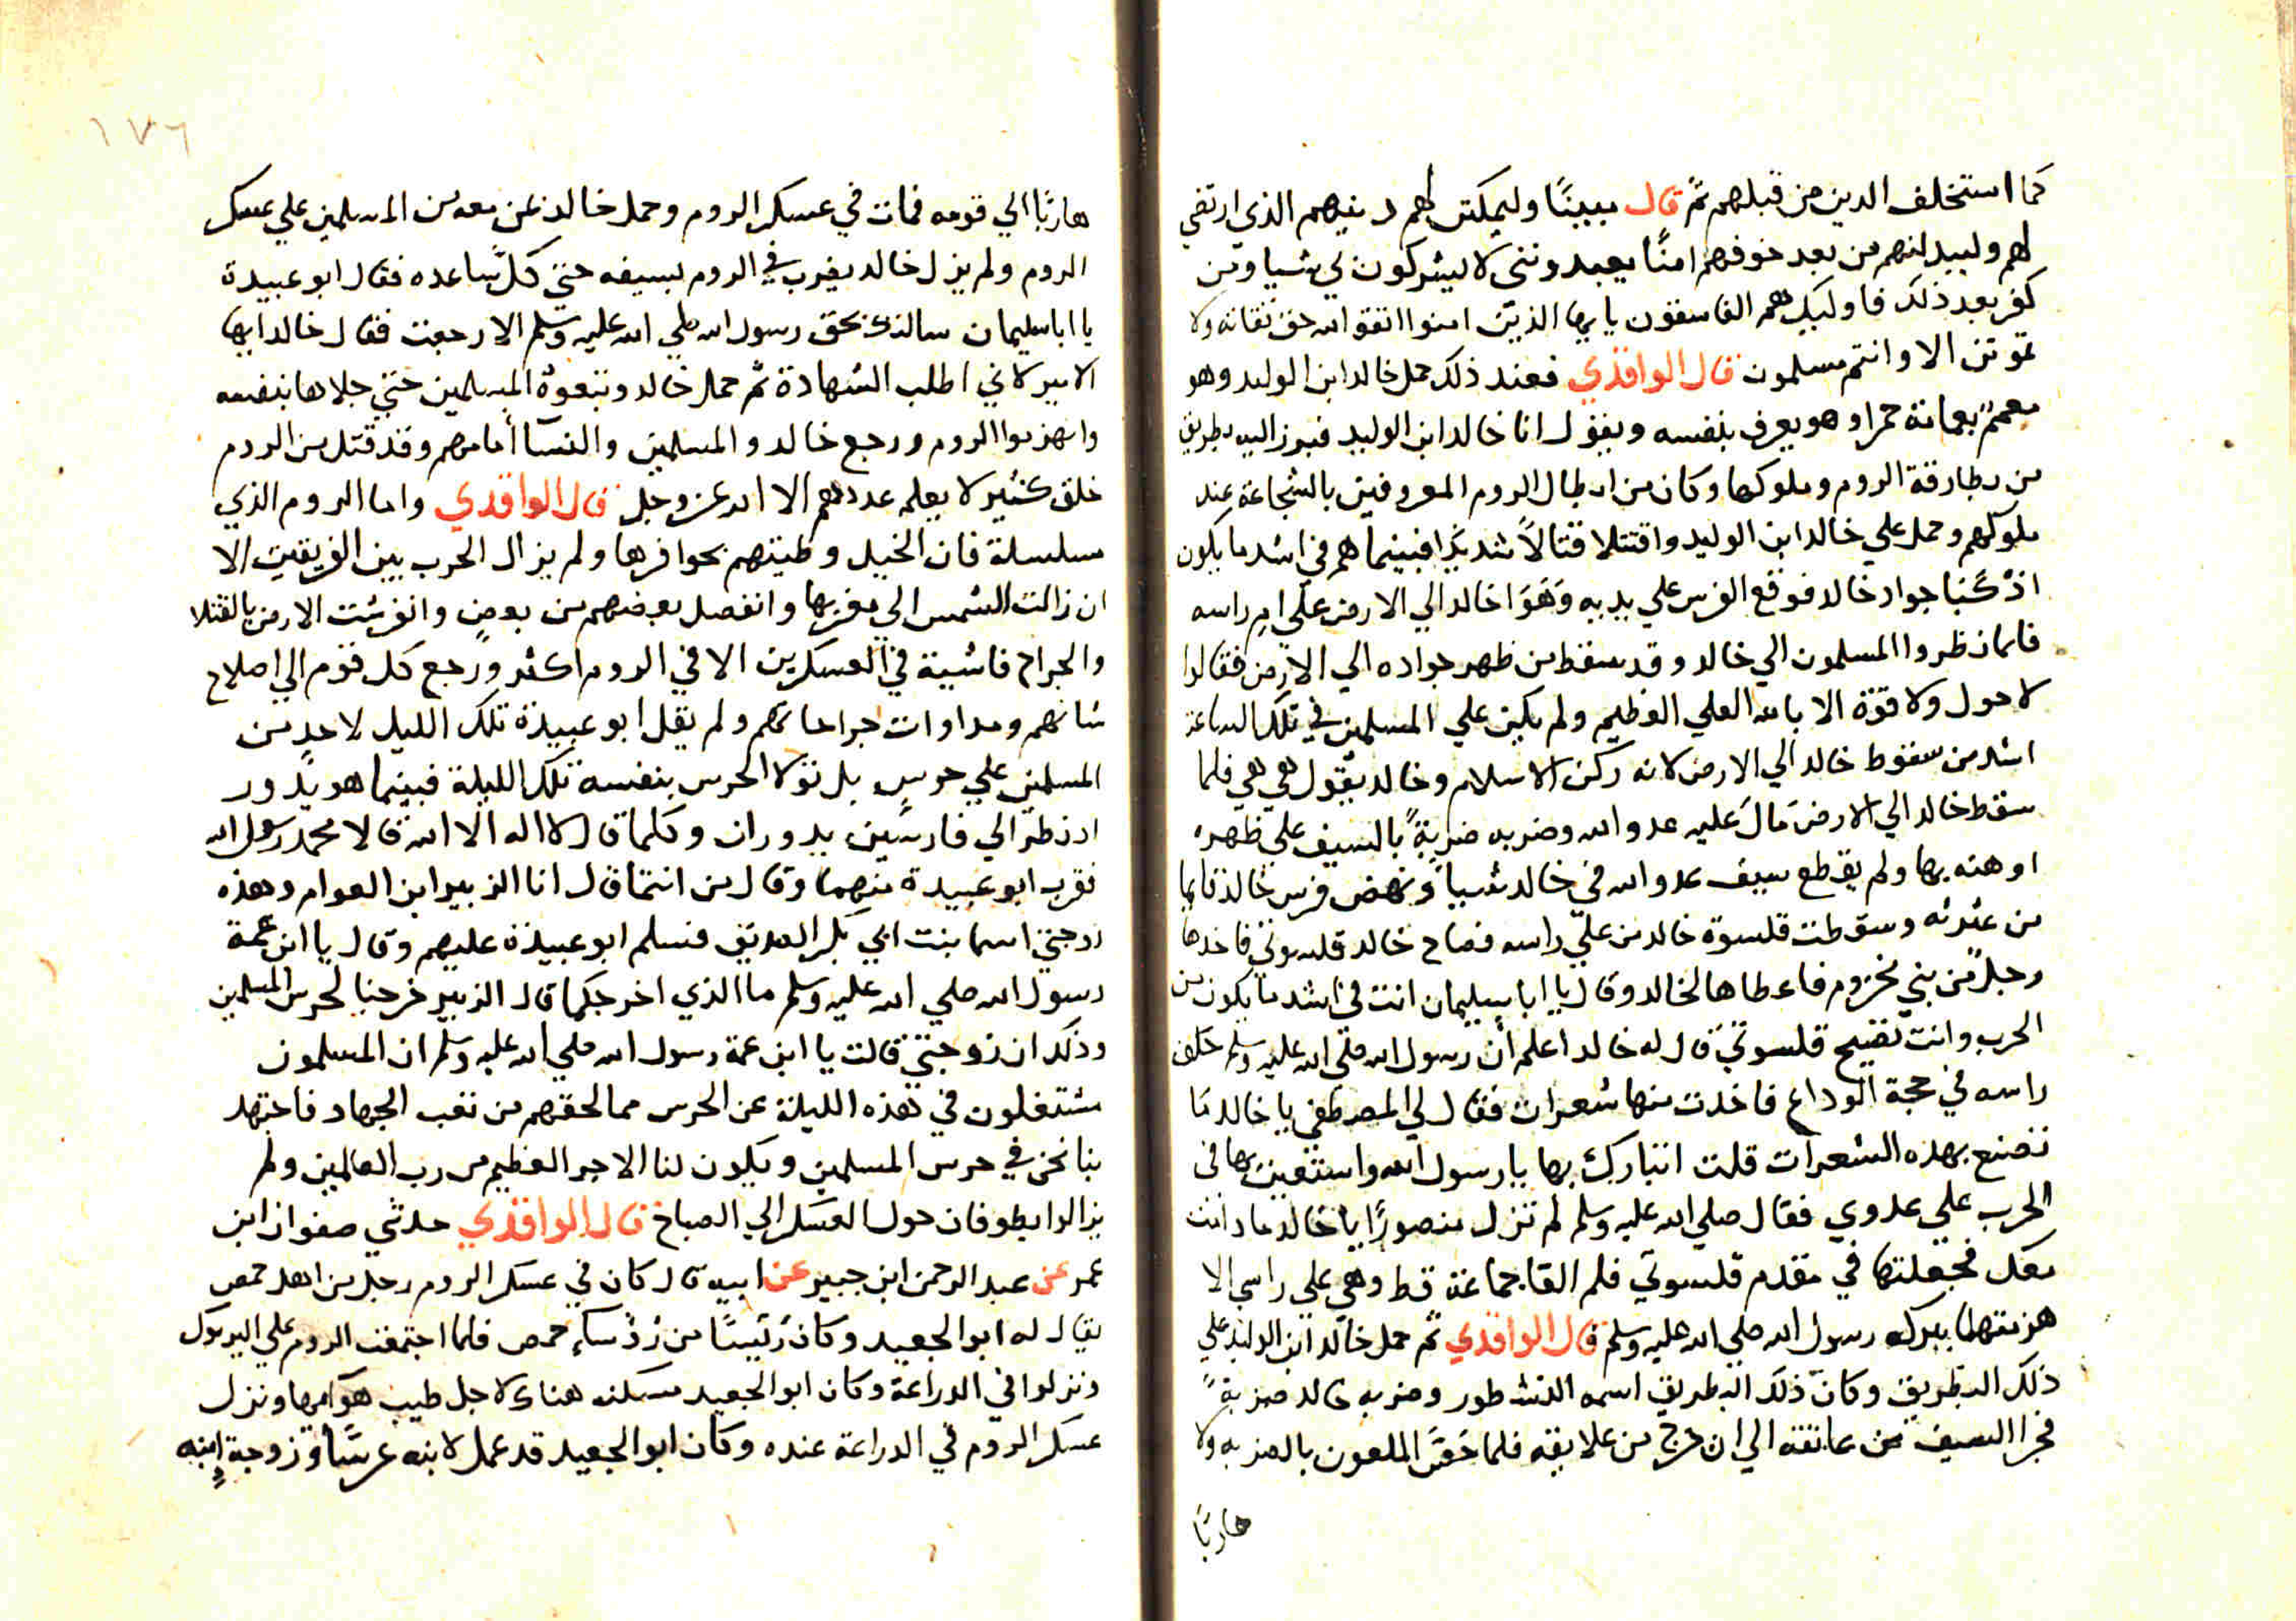 كما استخلف الدين من قبلهم ثم قال مبينًا وليمكنن لهم دينهم الذي ارتضي
لهم وليبدلنهم من بعد خوفهم امنًا يعبدونني لا يشركون لي شيا ومن
كفر بعد ذلك فاوليك هم الفاسقون يا يها الذين امنوا اتقوا الله حق تقاته ولا
تموتن الا وانتم مسلمون قال الواقدي فعند ذلك حمل خالد ابن الوليد وهو
معمم بعمامة حمرا وهو يعرف بنفسه ويقول انا خالد ابن الوليد فبرز اليه بطريق
من بطارقة الروم وملوكها وكان من ابطال الروم المعروفين بالشجاعة عند
ملوكهم وحمل علي خالد ابن الوليد واقتتلا قتالاً شديدًا فبينما هم في اشد ما يكون
اذ كبا جواد خالد فوقع الفرس علي يديه وهوا خالد الي الارض علي ام راسه
فلما نظروا المسلمون الي خالد وقد سقط من ظهر جواده الي الارض فقالوا
لا حول ولا قوة الا بالله العلي العظيم ولم يكن علي المسلمين في تلك الساعة
اشد من سقوط خالد الي الارض لانه ركن الاسلام وخالد يقول هي هي فلما
سقط خالد الي الارض مال عليه عدو الله وضربه ضربةً بالسيف علي ظهره
اوهنه بها ولم يقطع سيف عدو الله في خالد شياً ونهض فرس خالد قايما
من عثرته وسقطت قلسوة خالد من علي راسه فصاح خالد قلسوتي فاخدها
رجلاً من بني مخزوم فاعطاها لخالد وقال يا ابا سليمان انت في اشد ما يكون من
الحرب وانت تصيح قلسوتي قال له خالد اعلم أن رسول الله صلي الله عليه وسلم حلق
راسه في حجة الوداع فاخذت منها شعرات فقال لي المصطفي يا خالد ما
تصنع بهده الشعرات قلت اتبارك بها يا رسول الله واستعين بها في
الحرب علي عدوي فقال صلي الله عليه وسلم لم تزل منصورًا يا خالد ما دامت
معك فجعلتها في مقدم قلسوتي فلم القا جماعة قط وهي علي راسي الا
هزمتهما ببركه رسول الله صلي الله عليه وسلم قال الواقدي ثم حمل خالد ابن الوليد علي
ذلك البطريق وكان ذلك البطريق اسمه النشطور وضربه خالد ضربةً
فجرا السيف من عاتقه الي ان خرج من علايقه فلما حس الملعون بالضربه ولا
هاربًا
١٧٦
هاربًا الي قومه فمات في عسكر الروم وحمل خالد عن معه من المسلمين علي عسكر
الروم ولم يزل خالد يضرب في الروم بسيفه حتي كل ساعده فقال ابو عبيدة
يا ابا سليمان سالتك بحق رسول الله صلي الله عليه وسلم الا رجعت فقال خالد ايها
الامير لاني اطلب الشهادة ثم حمل خالد وتبعوه المسلمين حتي جلاها بنفسه
وانهزموا الروم ورجع خالد والمسلمين والنسآ أمامهم وقد قتل من الروم
خلق كثير لا يعلم عددهم الا الله عز وجل قال الواقدي واما الروم الذي
سلسلة فان الخيل وطيتهم بحوافرها ولم يزال الحرب بين الفريقين الا
ان زالت الشمس الي مغربها وانفصل بعضهم من بعض وانفرشت الارض بالقتلا
والجراح فاشية في العسكرين الا في الروم اكثر ورجع كل قوم الي اصلاح
شانهم ومداوات جراحاتهم ولم يقل ابو عبيدة تلك الليل لاحدٍ من
المسلمين علي حرس بل تولا الحرس بنفسه تلك الليلة فبينما هو يدور
اذ نظر الي فارسين يدوران وكلما قال لا اله الا الله قالا محمد رسول الله
فقرب ابو عبيدة منهما وقال من انتما قال انا الزبير ابن العوام وهذه
زوجتي اسما بنت ابي بكر الصديق فسلم ابو عبيدة عليهم وقال يا ابن عمة
رسول الله صلي الله عليه وسلم ما الذي اخرجكما قال الزبير خرجنا لحرس المسلمين
وذلك ان زوجتي قالت يا ابن عمة رسول الله صلي الله عليه وسلم ان المسلمون
مشتغلون في هذه الليلة عن الحرس مما لحقهم من تعب الجهاد فاجتهد
بنا نحن في حرس المسلمين ويكون لنا الاجر العظيم من رب العالمين ولم
يزالوا يطوفان حول العسكر الي الصباح قال الواقدي حدثني صفوان ابن
عمر عن عبد الرحمن ابن جبير عن ابيه قال كان في عسكر الروم رجل من اهل حمص
يقال له ابو الجعيد وكان رئيسًا من رؤساء حمص فلما اجتمعت الروم علي اليرموك
ونزلوا في الدراعة وكان ابو الجعيد مسكنه هناك لاجل طيب هوايها ونزل
عسكر الروم في الدراعة عنده وكان ابو الجعيد قد عمل لابنه عرسًا وزوجة إبنه